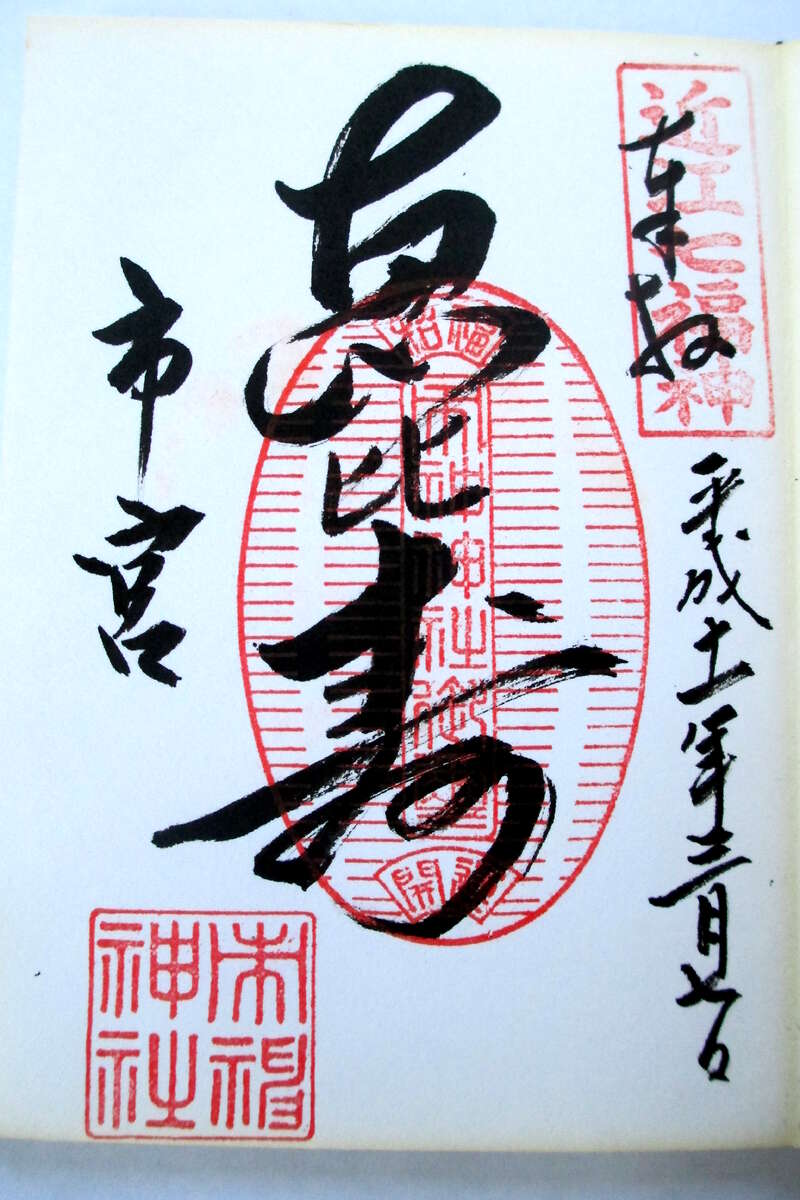 近江七福神
奉拝
平成十一年三月七日
恵比寿
招福
市神神社御
開運
市宮
市神
神社